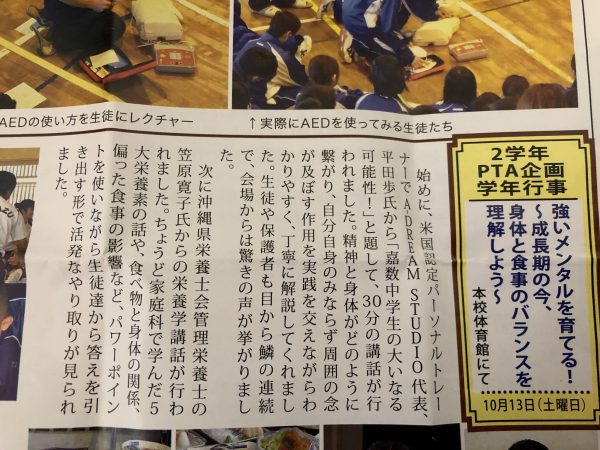 AEDの使い方を生徒にレクチャー
↑実際にAEDを使ってみる生徒たち
2学年
PTA企画
学年行事
強いメンタルを育てる！
～成長期の今、
身体と食事のバランスを
理解しよう～
本校体育館にて
10月13日（土曜日）
始めに、米国認定パーソナルトレー
ナーでADREAM STUDIO代表、
平田歩氏から「嘉数中学生の大いなる
可能性！」と題して、30分の講話が行
われました。精神と身体がどのように
繋がり、自分自身のみならず周囲の念
が及ぼす作用を実践を交えながらわ
かりやすく、丁寧に解説してくれまし
た。生徒や保護者も目から鱗の連続
で、会場からは驚きの声が挙がりまし
た。
次に沖縄県栄養士会管理栄養士の
笠原寛子氏からの栄養学講話が行わ
れました。ちょうど家庭科で学んだ5
大栄養素の話や、食べ物と身体の関係、
偏った食事の影響など、パワーポイン
トを使いながら生徒達から答えを引
き出す形で活発なやり取りが見られ
ました。